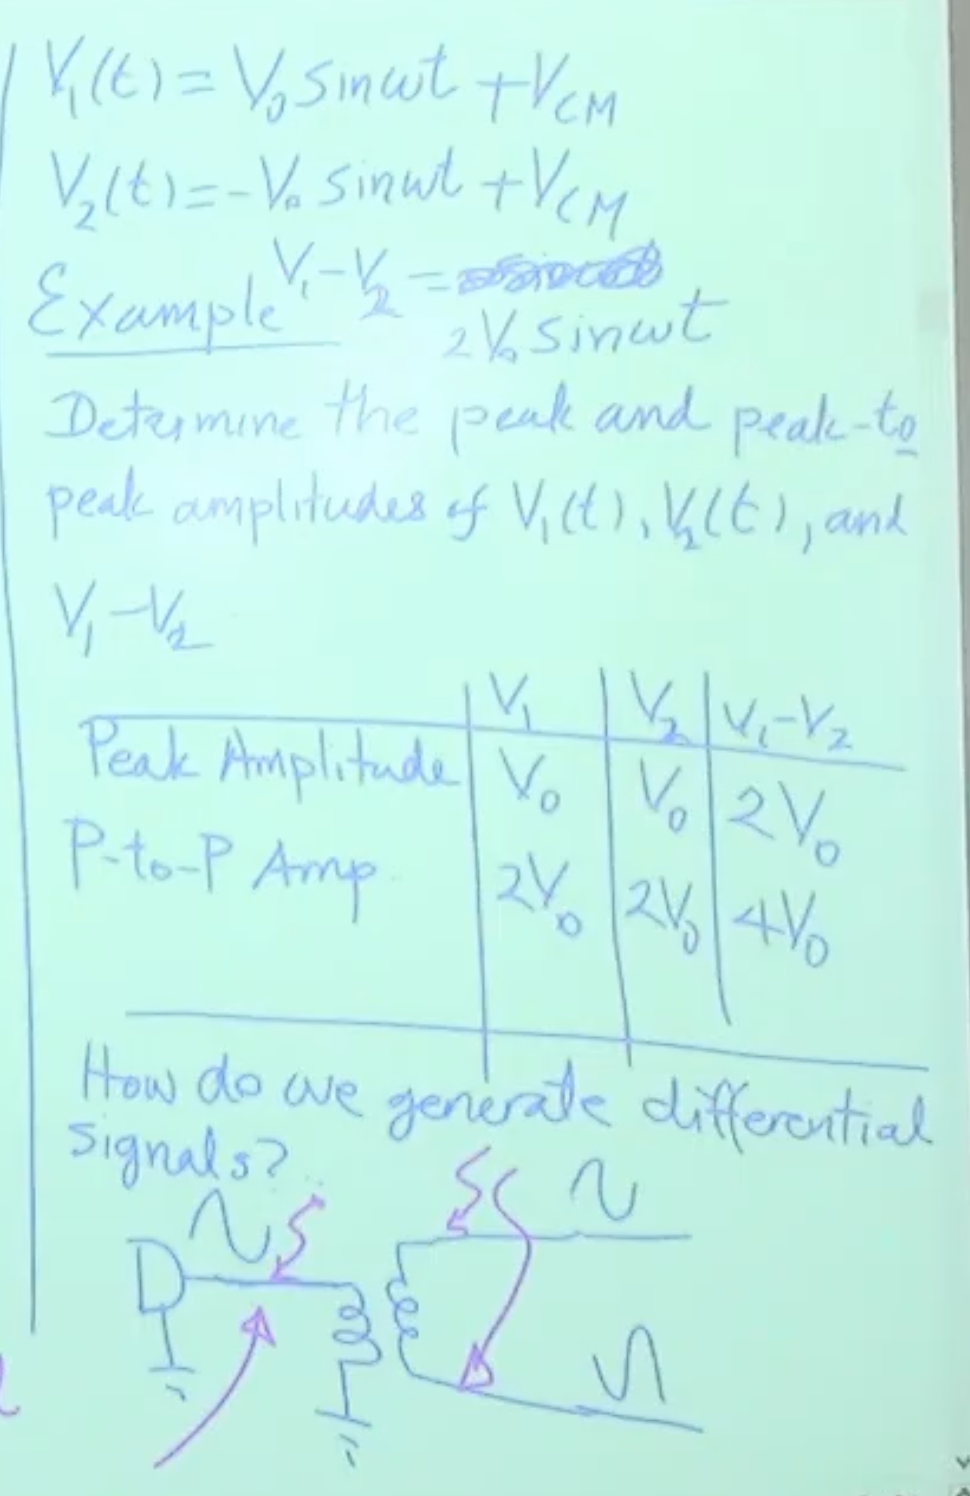 V₁(t) = V₀ sinωt + V_CM
V₂(t) = -V₀ sinωt + V_CM
Example V₁-V₂ =
2V₀ sinωt
Determine the peak and peak-to
peak amplitudes of V₁(t), V₂(t), and
V₁-V₂
V₁ V₂ V₁-V₂
Peak Amplitude V₀ V₀ 2V₀
P-to-P Amp. 2V₀ 2V₀ 4V₀
How do we generate differential
signals?